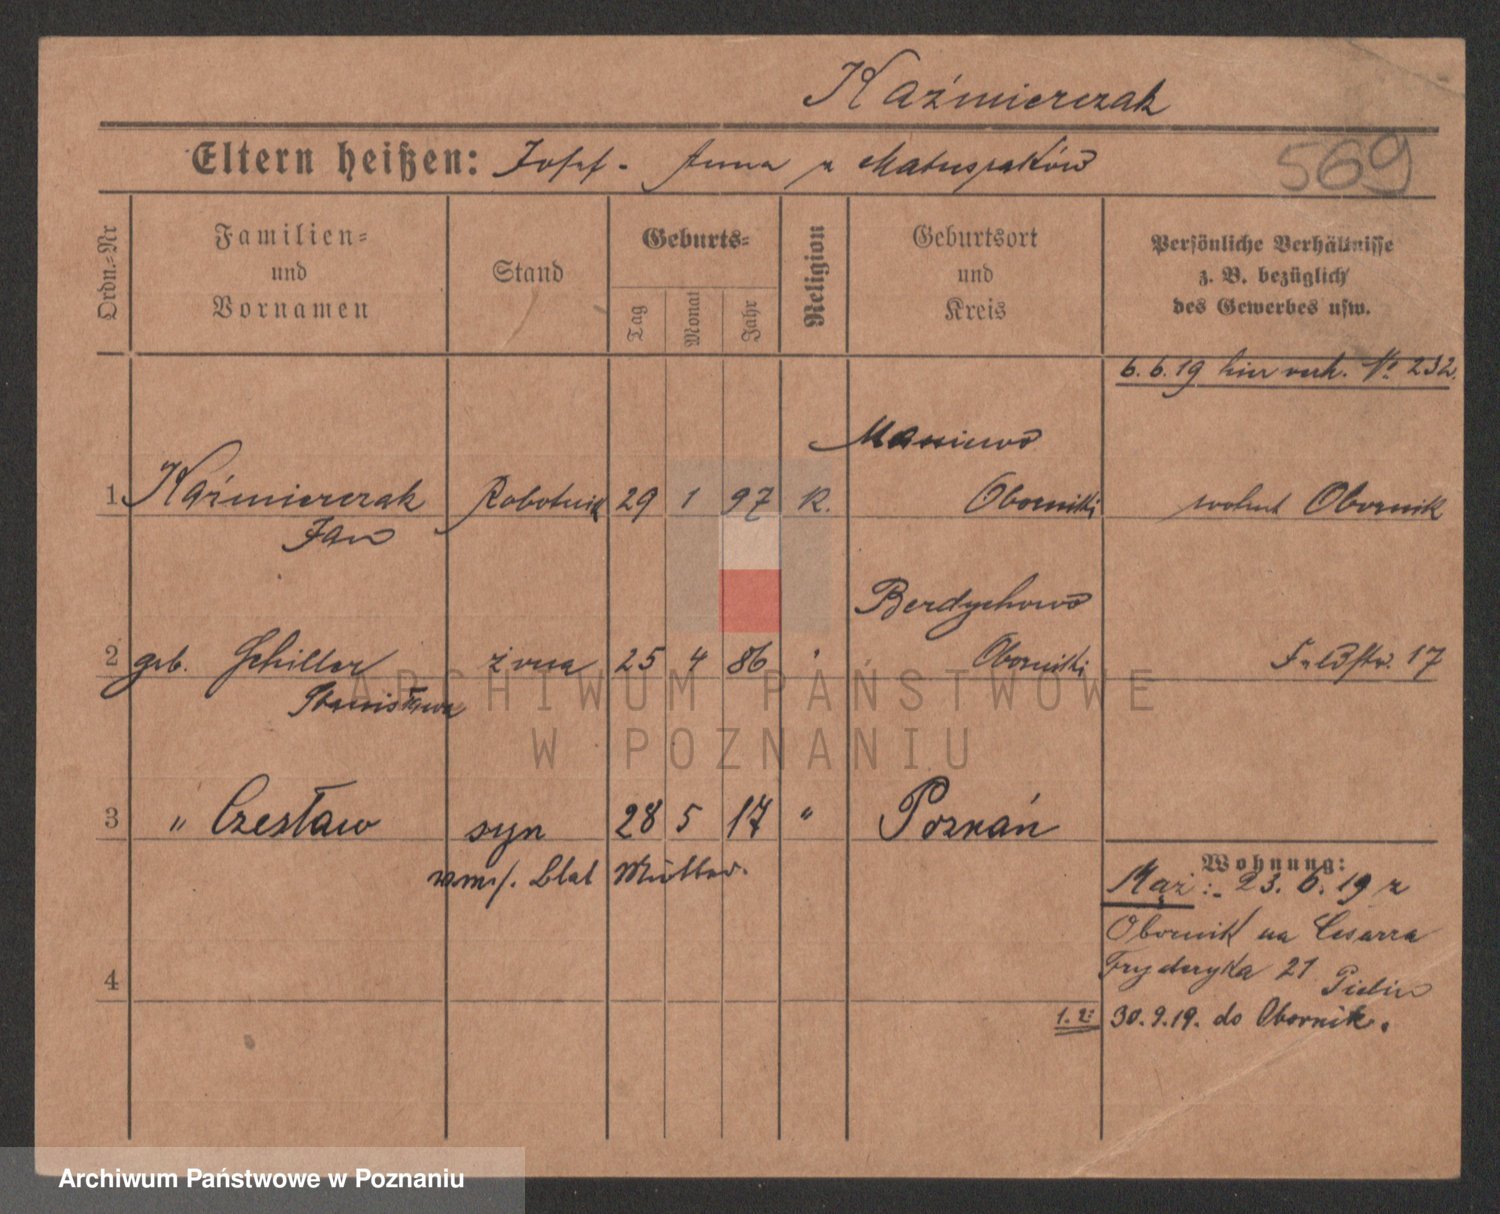 Kaźmierczak
Eltern heißen: Josef - Anna z Matuszaków
569
Ordn.-Nr
Familien-
und
Vornamen
Stand
Geburts-
Tag
Monat
Jahr
Religion
Geburtsort
und
Kreis
Persönliche Verhältnisse
z. B. bezüglich
des Gewerbes usw.
6. 6. 19 hier verh. Nº 232.
1 Kaźmierczak Robotnik 29 1 97 K. Obornicki wohnt Obornik
Jan
Berdychowo
2 geb. Schiller żona 25 4 86 " Obornicki Feldstr. 17
Stanisława
ARCHIWUM PAŃSTWOWE
W POZNANIU
3 " Czesław syn 28 5 17 " Poznań
Blat Mutter.
Wohnung:
Mąż: - 23. 6. 19 z
Obornik na Cesarza
Fryderyka 21
4
1. 2: 30. 9. 19. do Obornik.
Archiwum Państwowe w Poznaniu